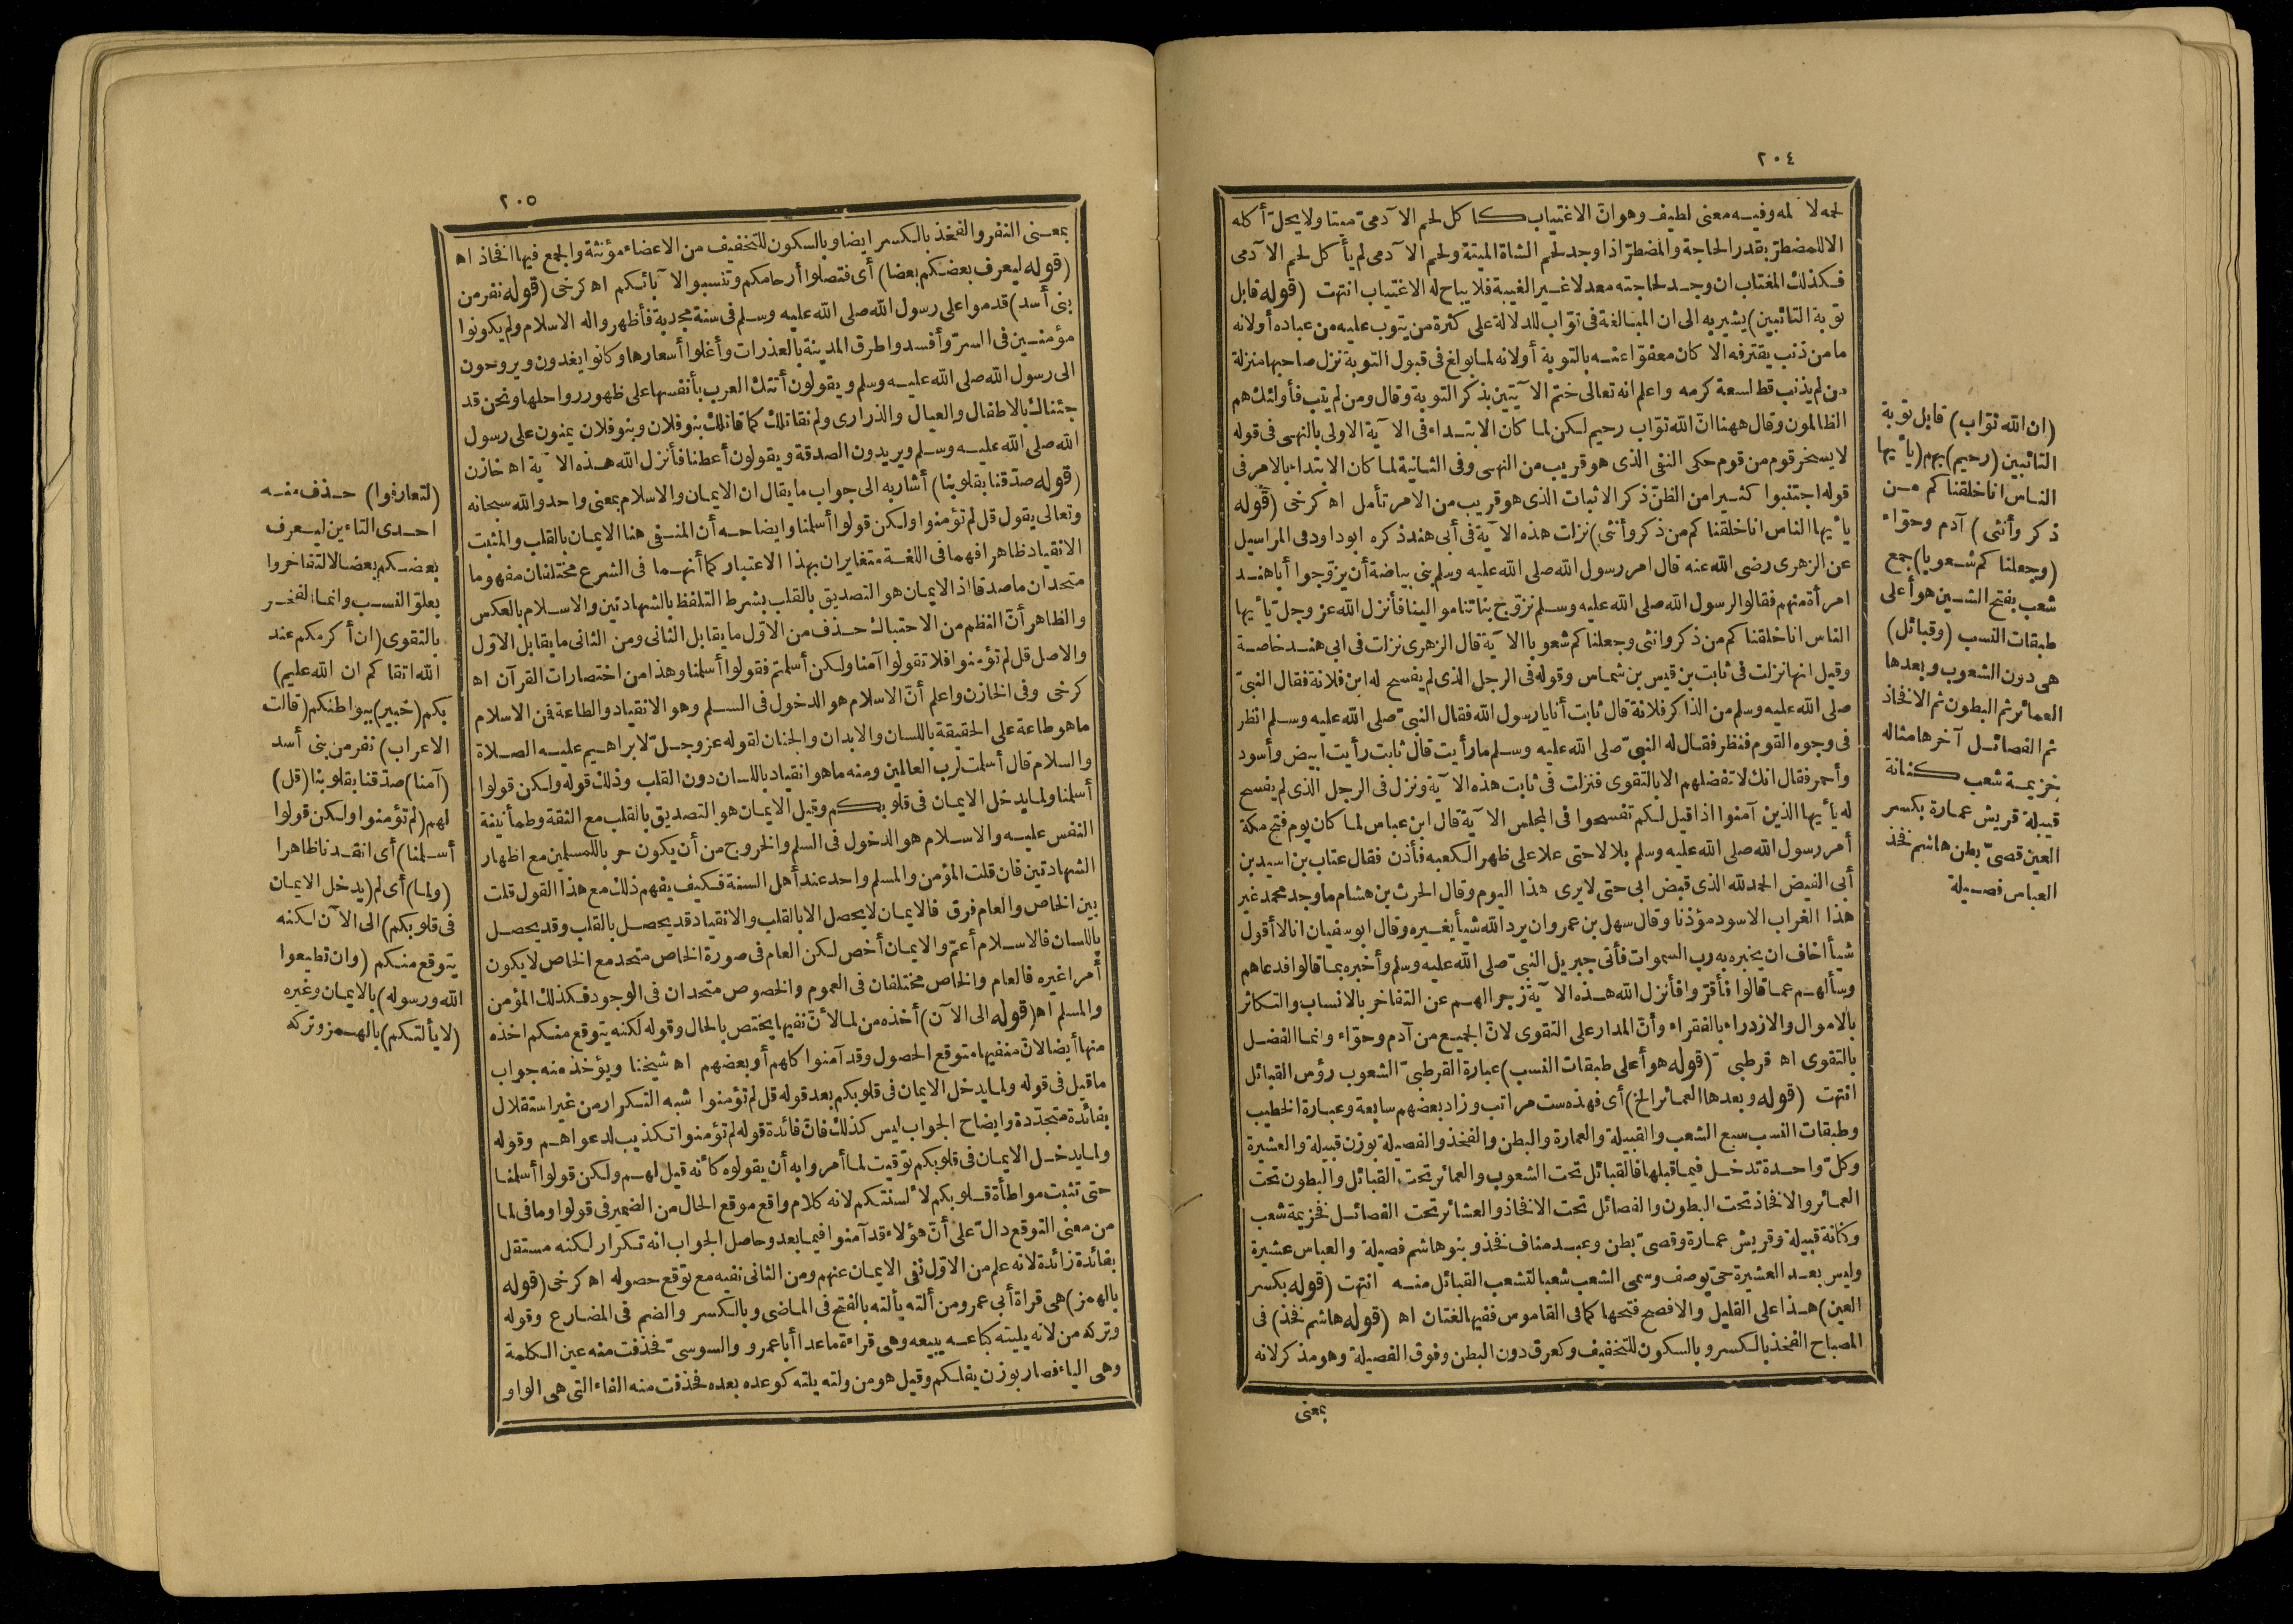 ٢٠٤
لحمه لا لمه وفيه معنى لطيف وهو ان الاغتياب كاكل لحم الآدمى ميتا ولا يحل أكله
الا للمضطر بقدر الحاجة والمضطر اذا وجد لحم الشاة الميتة ولحم الآدمى لم يأكل لحم الآدمى
فكذلك المغتاب ان وجد لحاجته معد لا غير الغيبة فلا يباح له الاغتياب انتهت (قوله قابل
توبة التائبين) يشير به الى ان المبالغة فى تواب للدلالة على كثرة من يتوب عليه من عباده أو لانه
ما من ذنب يقترفه الا كان معفوا عنه بالتوبة أو لانه لما بولغ فى قبول التوبة نزل صاحبها منزلة
من لم يذنب قط لسعة كرمه واعلم انه تعالى ختم الآيتين بذكر التوبة وقال ومن لم يتب فأولئك هم
الظالمون وقال ههنا ان الله تواب رحيم لكن لما كان الابتداء فى الآية الاولى بالنهى فى قوله
لا يسخر قوم من قوم حكى النفى الذى هو قريب من النهى وفى الثانية لما كان الابتداء بالامر فى
قوله اجتنبوا كثيرا من الظن ذكر الاثبات الذى هو قريب من الامر تأمل اه كرخى (قوله
يا أيها الناس انا خلقناكم من ذكر وأنثى) نزلت هذه الآية فى أبى هند ذكره ابو داود فى المراسيل
عن الزهرى رضى الله عنه قال امر رسول الله صلى الله عليه وسلم بنى بياضة أن يزوجوا أبا هند
امرأة منهم فقالوا لرسول الله صلى الله عليه وسلم نزوج بناتنا موالينا فأنزل الله عز وجل يا أيها
الناس انا خلقناكم من ذكر وانثى وجعلناكم شعوبا الآية قال الزهرى نزلت فى ابى هند خاصة
وقيل انها نزلت فى ثابت بن قيس بن شماس وقوله فى الرجل الذى لم يفسح له ابن فلانة فقال النبى
صلى الله عليه وسلم من الذاكر فلانة قال ثابت أنا يا رسول الله فقال النبى صلى الله عليه وسلم انظر
فى وجوه القوم فنظر فقال له النبى صلى الله عليه وسلم ما رأيت قال ثابت رأيت ابيض وأسود
وأحمر فقال انك لا تفضلهم الا بالتقوى فنزلت فى ثابت هذه الآية ونزل فى الرجل الذى لم يفسح
له يا أيها الذين آمنوا اذا قيل لكم تفسحوا فى المجلس الآية قال ابن عباس لما كان يوم فتح مكة
أمر رسول الله صلى الله عليه وسلم بلالا حتى علا على ظهر الكعبه فأذن فقال عتاب بن اسيد بن
أبى الفيض الحمد لله الذى قبض ابى حتى لا يرى هذا اليوم وقال الحرث بن هشام ما وجد محمد غير
هذا الغراب الاسود مؤذنا وقال سهل بن عمرو ان يرد الله شيأ يغيره وقال ابو سفيان انا لا أقول
شيأ اخاف ان يخبره به رب السموات فأتى جبريل النبى صلى الله عليه وسلم وأخبره بما قالوا فدعاهم
وسألهم عما قالوا فأقروا فأنزل الله هذه الآية زجرا لهم عن التفاخر بالانساب والتكاثر
بالاموال والازدراء بالفقراء وأن المدار على التقوى لان الجميع من آدم وحواء وانما الفضل
بالتقوى اه قرطبى (قوله هو أعلى طبقات النسب) عبارة القرطبى الشعوب رؤس القبائل
انتهت (قوله وبعدها العمائر الخ) أى فهذه ست مراتب وزاد بعضهم سابعة وعبارة الخطيب
وطبقات النسب سبع الشعب والقبيلة والعمارة والبطن والفخذ والفصيلة بوزن قبيلة والعشيرة
وكل واحدة تدخل فيما قبلها فالقبائل تحت الشعوب والعمائر تحت القبائل والبطون تحت
العمائر والافخاذ تحت البطون والفصائل تحت الافخاذ والعشائر تحت الفصائل فخزيمة شعب
وكنانة قبيلة وقريش عمارة وقصى بطن وعبد مناف فخذ وبنو هاشم فصيلة والعباس عشيرة
وليس بعد العشيرة حى يوصف وسمى الشعب شعبا لتشعب القبائل منه انتهت (قوله بكسر
العين) هذا على القليل والافصح فتحها كما فى القاموس ففيها لغتان اه (قوله هاشم فخذ) فى
المصباح الفخذ بالكسر وبالسكون للتخفيف وكعرق دون البطن وفوق الفصيلة وهو مذكر لانه
بمعنى
(ان الله تواب) قابل توبة
التائبين (رحيم) بهم (يا أيها
الناس انا خلقناكم من
ذكر وأنثى) آدم وحواء
(وجعلناكم شعوبا) جمع
شعب بفتح الشين هو أعلى
طبقات النسب (وقبائل)
هى دون الشعوب وبعدها
العمائر ثم البطون ثم الافخاذ
ثم الفصائل آخرها مثاله
خزيمة شعب كنانة
قبيلة قريش عمارة بكسر
العين قصى بطن هاشم فخذ
العباس فصيلة
٢٠٥
بمعنى النفر والفخذ بالكسر ايضا وبالسكون للتخفيف من الاعضاء مؤنثة والجمع فيها افخاذ اه
(قوله ليعرف بعضكم بعضا) أى فتصلوا أرحامكم وتنسبوا لآبائكم اه كرخى (قوله نفر من
بنى أسد) قدموا على رسول الله صلى الله عليه وسلم فى سنة مجدبة فأظهروا له الاسلام ولم يكونوا
مؤمنين فى السر وأفسدوا طرق المدينة بالعذرات وأغلوا أسعارها وكانوا يغدون ويروحون
الى رسول الله صلى الله عليه وسلم ويقولون أتتك العرب بأنفسها على ظهور رواحلها ونحن قد
جئناك بالاطفال والعيال والذرارى ولم نقاتلك كما قاتلك بنو فلان وبنو فلان يمنون على رسول
الله صلى الله عليه وسلم ويريدون الصدقة ويقولون أعطنا فأنزل الله هذه الآية اه خازن
(قوله صدقنا بقلوبنا) أشار به الى جواب ما يقال ان الايمان والاسلام بمعنى واحد والله سبحانه
وتعالى يقول قل لم تؤمنوا ولكن قولوا أسلمنا وايضاحه أن المنفى هنا الايمان بالقلب والمثبت
الانقياد ظاهرا فهما فى اللغة متغايران بهذا الاعتبار كما أنهما فى الشرع مختلفان مفهوما
متحدان ماصدقا اذ الايمان هو التصديق بالقلب بشرط التلفظ بالشهادتين والاسلام بالعكس
والظاهر أن النظم من الاحتباك حذف من الاول ما يقابل الثانى ومن الثانى ما يقابل الاول
والاصل قل لم تؤمنوا فلا تقولوا آمنا ولكن أسلمتم فقولوا أسلمنا وهذا من اختصارات القرآن اه
كرخى وفى الخازن واعلم أن الاسلام هو الدخول فى السلم وهو الانقياد والطاعة فمن الاسلام
ما هو طاعة على الحقيقة باللسان والابدان والجنان لقوله عز وجل لابراهيم عليه الصلاة
والسلام قال أسلمت لرب العالمين ومنه ما هو انقياد باللسان دون القلب وذلك قوله ولكن قولوا
أسلمنا ولما يدخل الايمان فى قلوبكم وقيل الايمان هو التصديق بالقلب مع الثقة وطمأنينة
النفس عليه والاسلام هو الدخول فى السلم والخروج من أن يكون حربا للمسلمين مع اظهار
الشهادتين فان قلت المؤمن والمسلم واحد عند أهل السنة فكيف يفهم ذلك مع هذا القول قلت
بين الخاص والعام فرق فالايمان لا يحصل الا بالقلب والانقياد قد يحصل بالقلب وقد يحصل
باللسان فالاسلام أعم والايمان أخص لكن العام فى صورة الخاص متحد مع الخاص لا يكون
أمرا غيره فالعام والخاص مختلفان فى العموم والخصوص متحدان فى الوجود فكذلك المؤمن
والمسلم اه (قوله الى الآن) أخذه من لما لأن نفيها يختص بالحال وقوله لكنه يتوقع منكم اخذه
منها أيضا لان منفيها متوقع الحصول وقد آمنوا كلهم أو بعضهم اه شيخنا ويؤخذ منه جواب
ما قيل فى قوله ولما يدخل الايمان فى قلوبكم بعد قوله قل لم تؤمنوا شبه التكرار من غير استقلال
بفائدة متجددة وايضاح الجواب ليس كذلك فان فائدة قوله لم تؤمنوا تكذيب لدعواهم وقوله
ولما يدخل الايمان فى قلوبكم توقيت لما أمروا به أن يقولوه كأنه قيل لهم ولكن قولوا أسلمنا
حتى تثبت مواطأة قلوبكم لألسنتكم لانه كلام واقع موقع الحال من الضمير فى قولوا وما فى لما
من معنى التوقع دال على أن هؤلاء قد آمنوا فيما بعد وحاصل الجواب انه تكرار لكنه مستقل
بفائدة زائدة لانه علم من الاول نفى الايمان عنهم ومن الثانى نفيه مع توقع حصوله اه كرخى (قوله
بالهمز) هى قراءة أبى عمرو من ألته يألته بالفتح فى الماضى وبالكسر والضم فى المضارع وقوله
وتركه من لاته يليته كباعه يبيعه وهى قراءة ما عدا أبا عمرو والسوسى فحذفت منه عين الكلمة
وهى الياء فصار بوزن يفلكم وقيل هو من ولته يلته كوعده يعده فحذفت منه الفاء التى هى الواو
(لتعارفوا) حذف منه
احدى التاءين ليعرف
بعضكم بعضا لا لتفاخروا
بعلو النسب وانما الفخر
بالتقوى (ان أكرمكم عند
الله اتقاكم ان الله عليم)
بكم (خبير) ببواطنكم (قالت
الاعراب) نفر من بنى أسد
(آمنا) صدقنا بقلوبنا (قل)
لهم (لم تؤمنوا ولكن قولوا
أسلمنا) أى انقدنا ظاهرا
(ولما) أى لم (يدخل الايمان
فى قلوبكم) الى الآن لكنه
يتوقع منكم (وان تطيعوا
الله ورسوله) بالايمان وغيره
(لا يألتكم) بالهمز وتركه